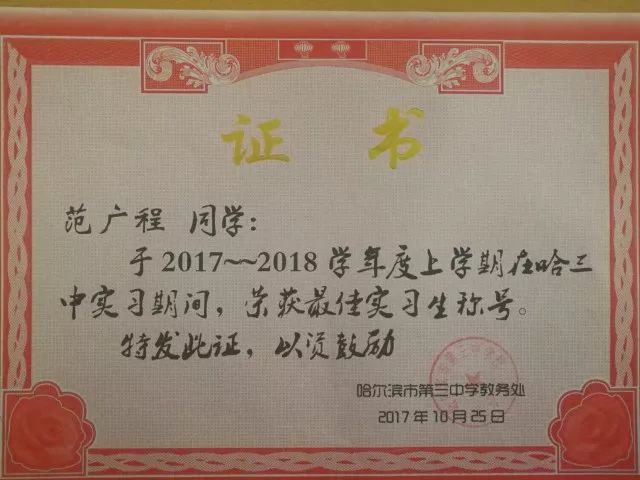 证 书
范广程 同学：
于2017~~2018学年度上学期在哈三
中实习期间，荣获最佳实习生称号。
特发此证，以资鼓励
哈尔滨市第三中学教务处
2017年10月25日